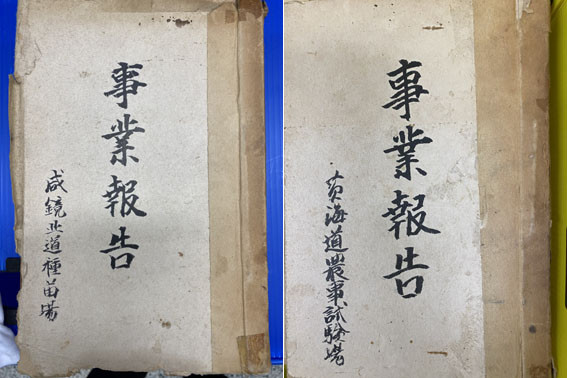 事業報告
咸鏡北道種苗場
事業報告
黄海道農事試驗場